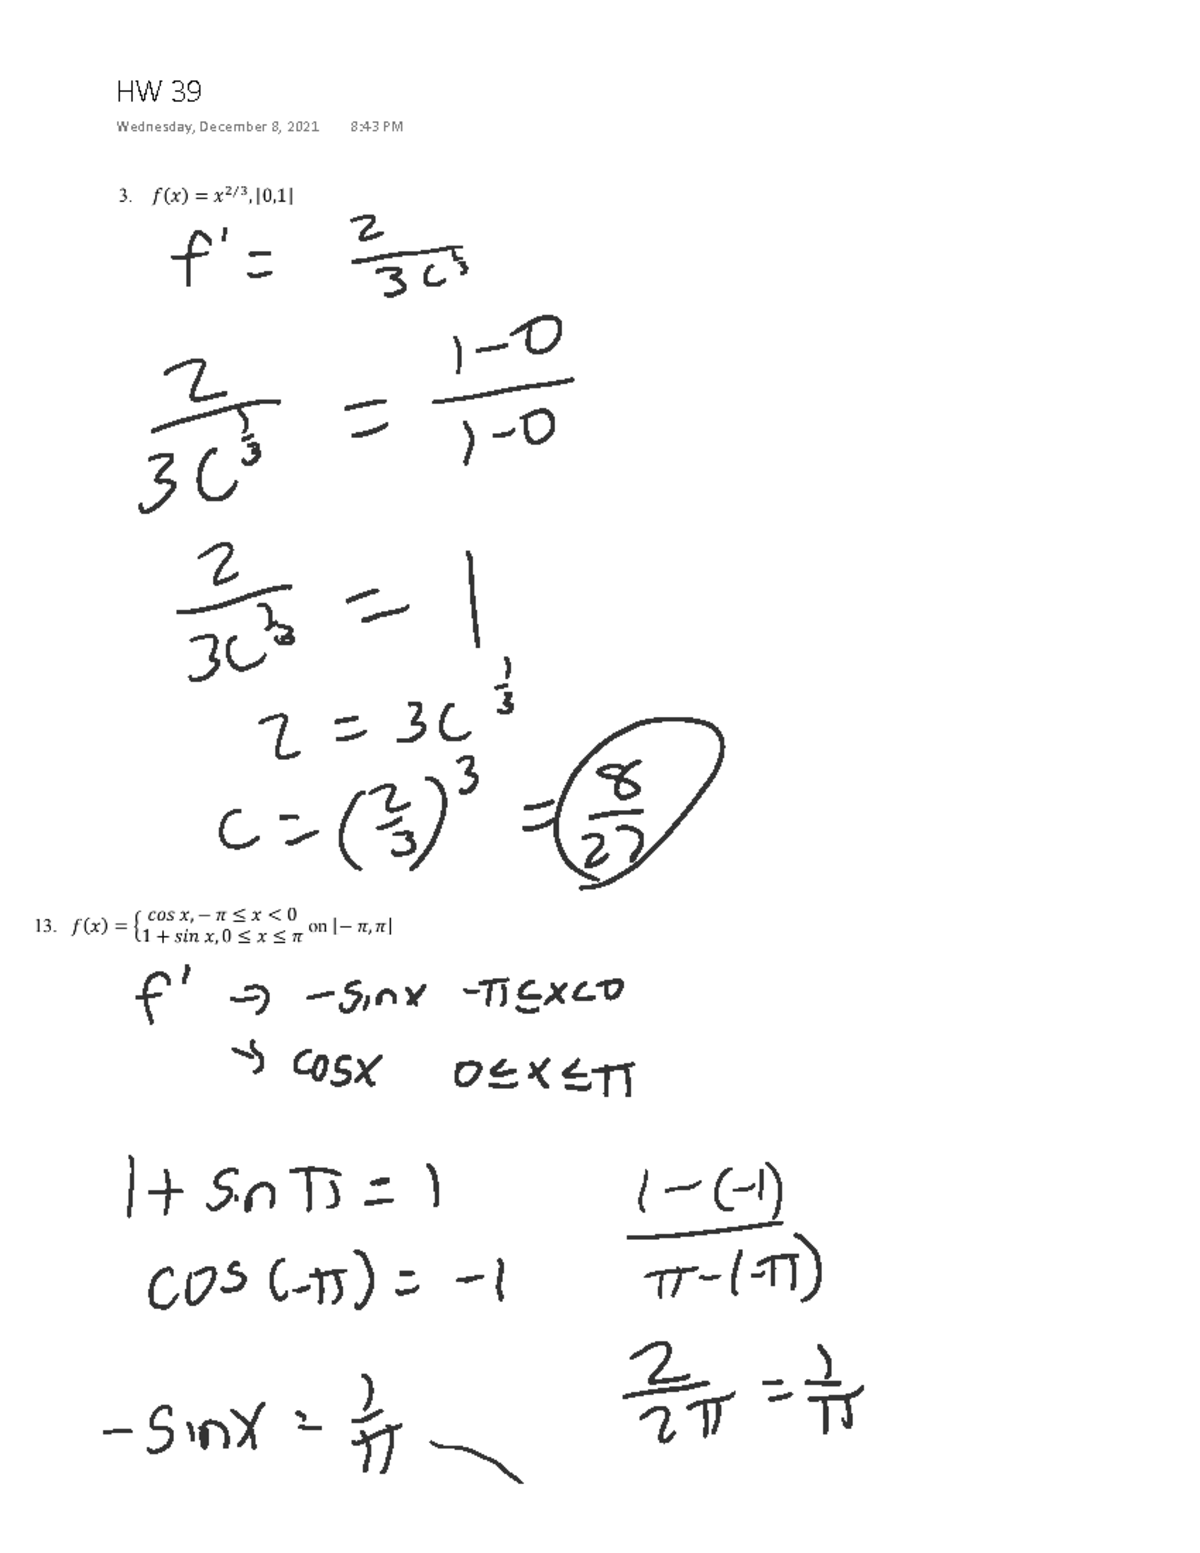 HW 39
Wednesday, December 8, 2021 8:43 PM
3. f(x) = x^{2/3}, [0,1]
f' = 2/(3c^{1/3})
2/(3c^{1/3}) = (1-0)/(1-0)
2/(3c^{1/3}) = 1
2 = 3c^{1/3}
c = (2/3)^3 = 8/27
13. f(x) = { cos x, − π ≤ x < 0
1 + sin x, 0 ≤ x ≤ π on [− π, π]
f' → -sinx -π≤x<0
→ cosx 0≤x≤π
1+ sin π = 1 (1-(-1))/(π-(-π))
cos(-π) = -1
2/(2π) = 1/π
-sinx = 1/π